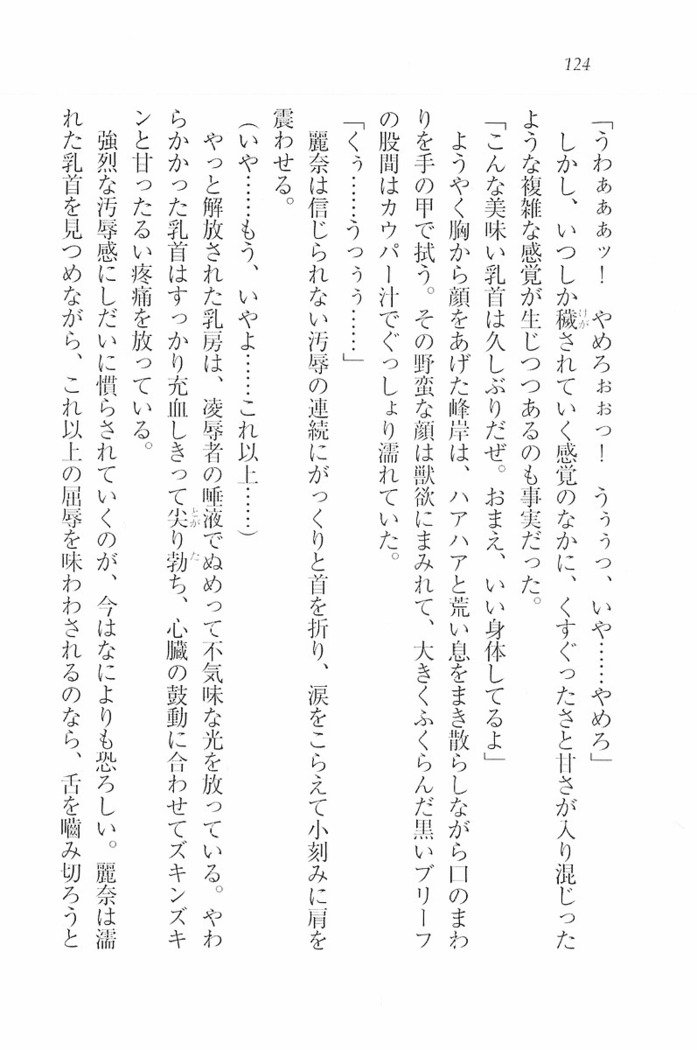 124
「うわぁぁぁッ！　やめろぉぉっ！　うぅぅっ、いや……やめろ」
　しかし、いつしか穢されていく感覚のなかに、くすぐったさと甘さが入り混じった
ような複雑な感覚が生じつつあるのも事実だった。
「こんな美味い乳首は久しぶりだぜ。おまえ、いい身体してるよ」
　ようやく胸から顔をあげた峰岸は、ハアハアと荒い息をまき散らしながら口のまわ
りを手の甲で拭う。その野蛮な顔は獣欲にまみれて、大きくふくらんだ黒いブリーフ
の股間はカウパー汁でぐっしょり濡れていた。
「くぅ……うっぅぅ……」
　麗奈は信じられない汚辱の連続にがっくりと首を折り、涙をこらえて小刻みに肩を
震わせる。
（いや……もう、いやよ……これ以上……）
　やっと解放された乳房は、凌辱者の唾液でぬめって不気味な光を放っている。やわ
らかかった乳首はすっかり充血しきって尖り勃ち、心臓の鼓動に合わせてズキンズキ
ンと甘ったるい疼痛を放っている。
　強烈な汚辱感にしだいに慣らされていくのが、今はなによりも恐ろしい。麗奈は濡
れた乳首を見つめながら、これ以上の屈辱を味わわされるのなら、舌を嚙み切ろうと